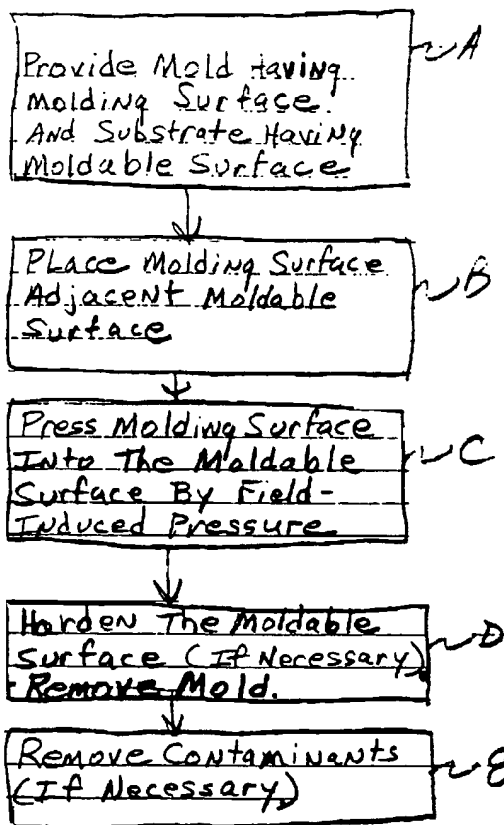 Provide Mold Having
Molding Surface.
And Substrate Having
Moldable Surface
A
Place Molding Surface
Adjacent Moldable
Surface
B
Press Molding Surface
Into The Moldable
Surface By Field-
Induced Pressure
C
Harden The Moldable
Surface (If Necessary)
Remove Mold.
D
Remove Contaminants
(If Necessary)
E